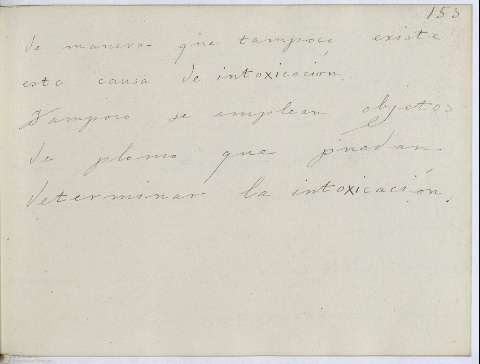 153
de manera que tampoco existe
esta causa de intoxicación.
Tampoco se emplean objetos
de plomo que puedan
determinar la intoxicación.